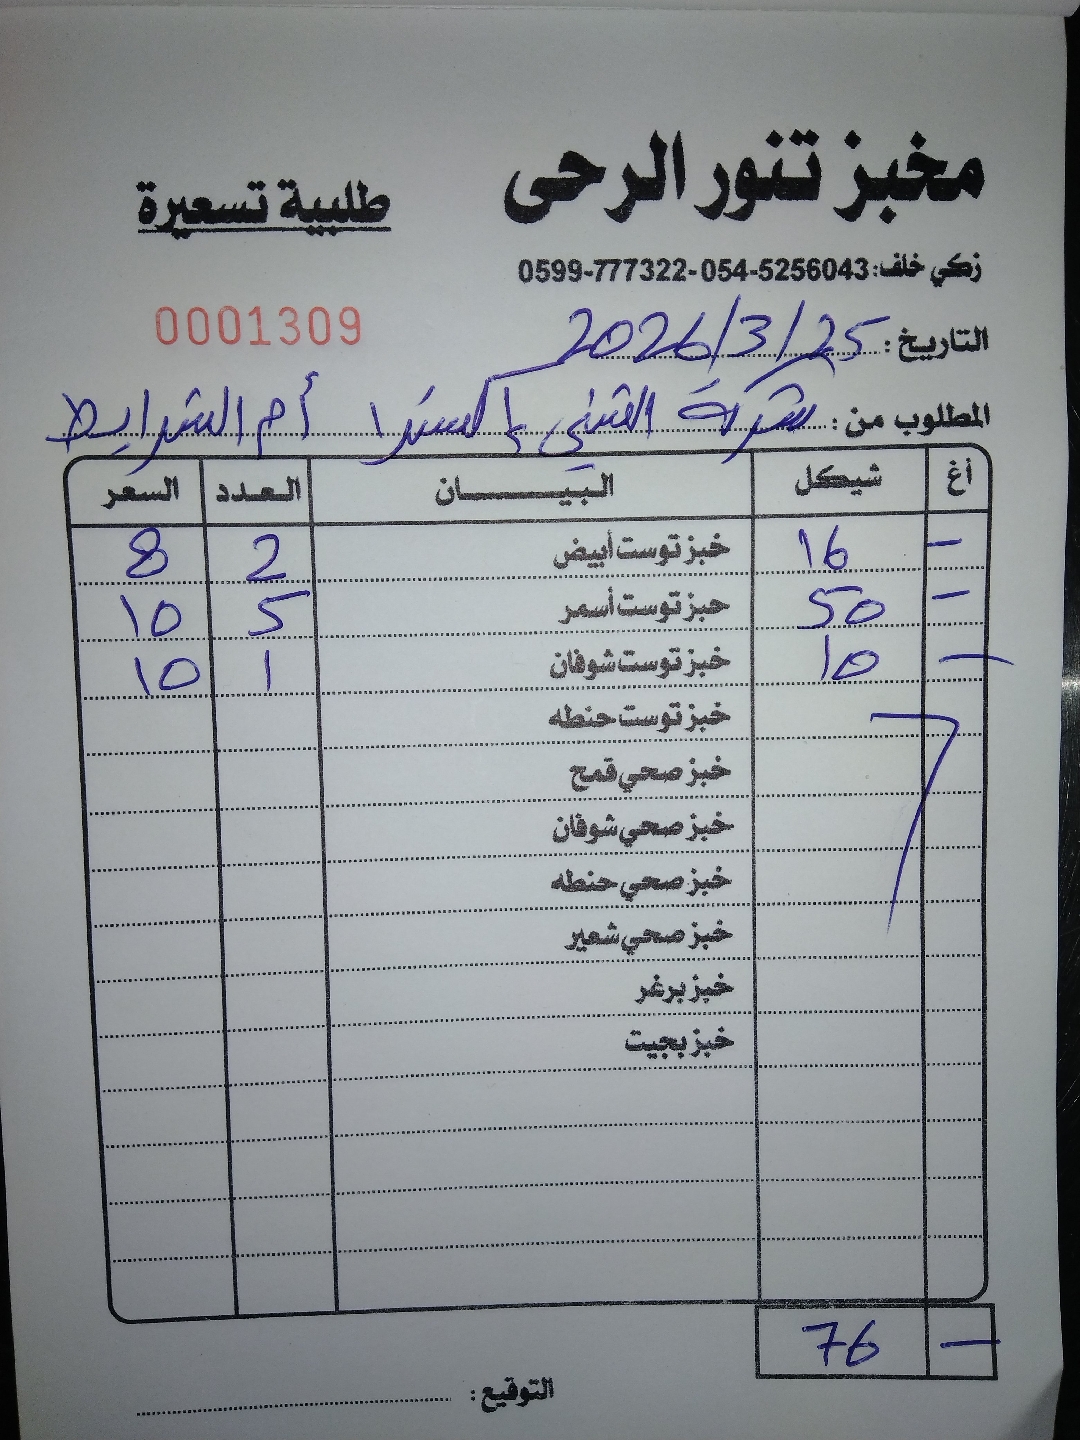 مخبز تنور الرحى
طلبية تسعيرة
زكي خلف: 0599-777322-054-5256043
0001309
التاريخ: 2026/3/25
المطلوب من: شركة الشني إكسترا أم الشرايط
أغ شيكل البيان العدد السعر
- 16 خبز توست أبيض 2 8
- 50 خبز توست أسمر 5 10
- 10 خبز توست شوفان 1 10
خبز توست حنطه
خبز صحي قمح
خبز صحي شوفان
خبز صحي حنطه
خبز صحي شعير
خبز برغر
خبز بجيت
- 76
التوقيع: